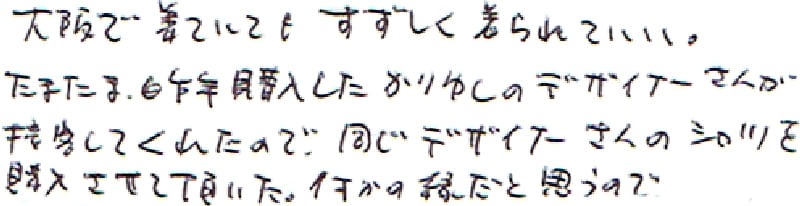 大阪で着ていてもすずしく着られていい。
たまたま、昨年購入したかりゆしのデザイナーさんが
接客してくれたので、同じデザイナーさんのシャツを
購入させて頂いた。何かの縁だと思うので